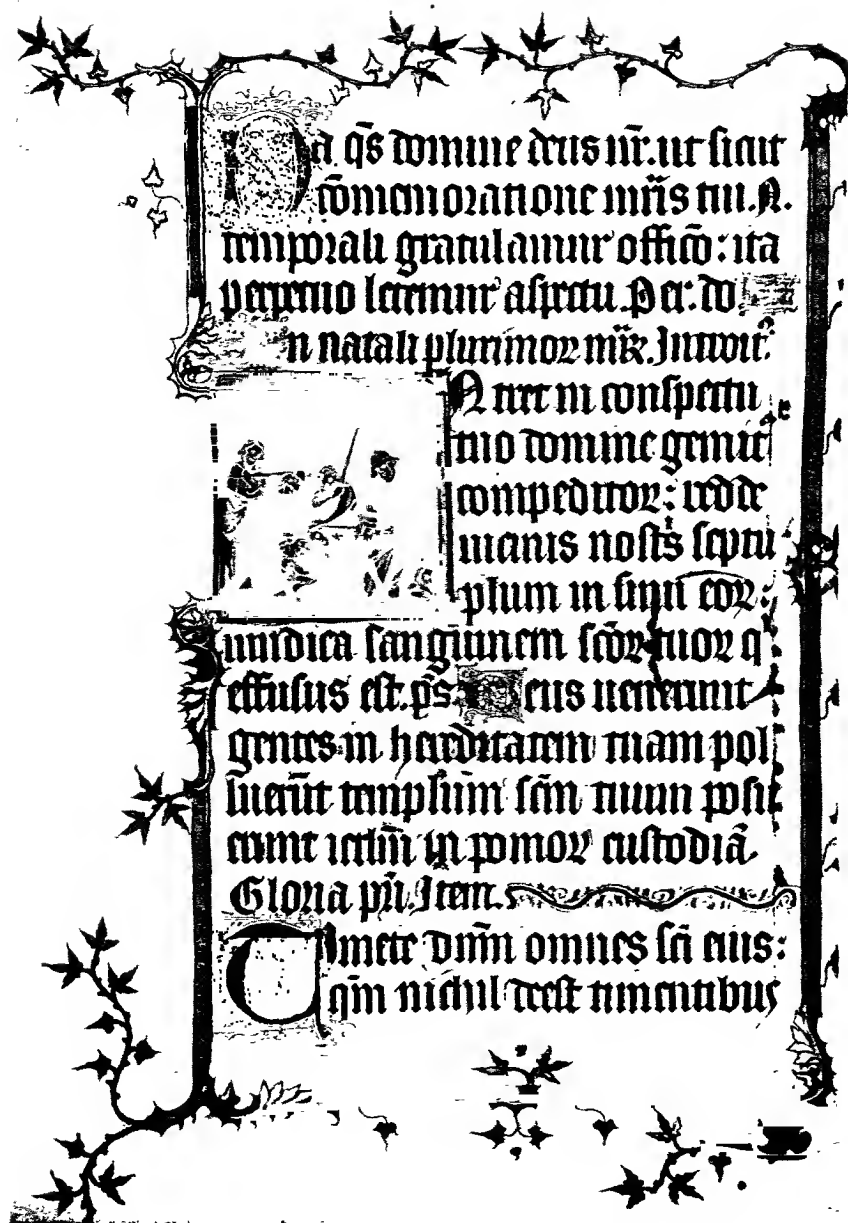 Da q̄s domine deus nr̄. ut sicut
cōmemoratione mr̄is tui. N.
temporali gratulamur officō: ita
perpetuo letemur aspectu. Per. do.
In natali plurimoꝝ mr̄ꝝ. Introit᷒.
INtret in conspectu
tuo domine gemit᷒
compeditoꝝ: redde
uicinis nostīs septu
plum in sinu eoꝝ:
uindica sanguinem scōꝝ tuoꝝ q
effusus est. p̄s. Deus uenerunt
gentes in hereditatem tuam pol
luerūt templum scm̄ tuum posu
erunt ierlm̄ in pomoꝝ custodiā.
Gloria pr̄i. Item.
Timete dnm̄ omnes scī eius:
qm̄ nichil deest timentibus